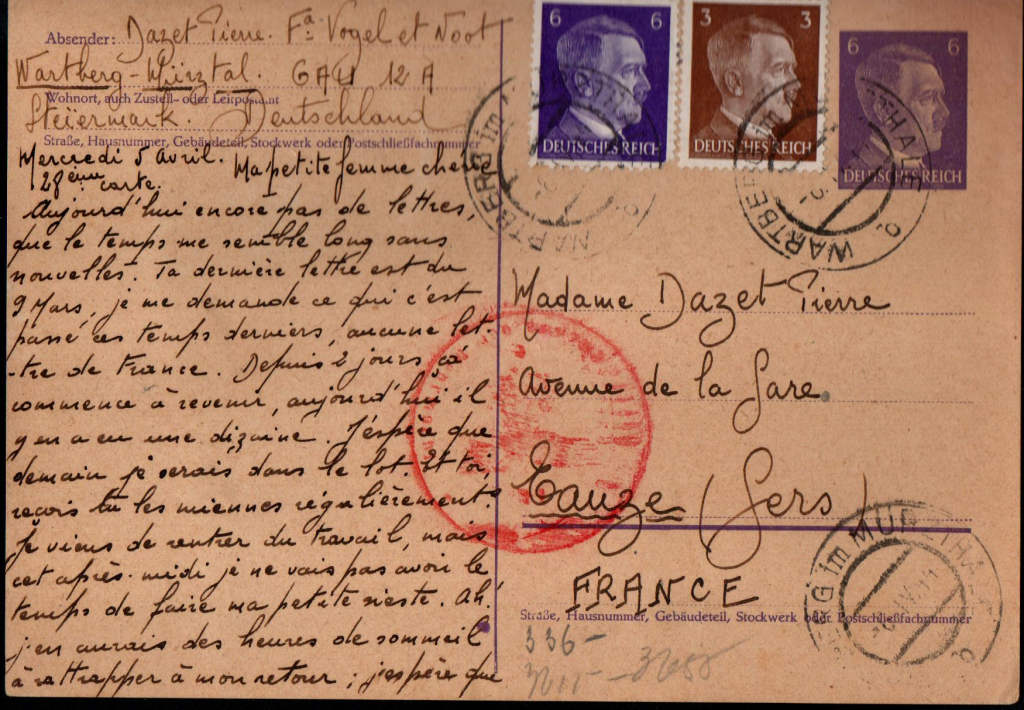 Absender: Dazet Pierre. Fa Vogel et Noot
Wartberg-Mürztal. GAU 12 A
Wohnort, auch Zustell- oder Leitpostamt
Steiermark. Deutschland
Straße, Hausnummer, Gebäudeteil, Stockwerk oder Postschließfachnummer
Mercredi 5 Avril. Ma petite femme chérie
28ème carte.
Aujourd'hui encore pas de lettres,
que le temps me semble long sans
nouvelles. Ta dernière lettre est du
9 Mars, je me demande ce qui c'est
passé ces temps derniers, aucune let-
-tre de France. Depuis 2 jours ça
commence à revenir, aujourd'hui il
y en a eu une dizaine. J'espère que
demain je serais dans le lot. Et toi,
reçois tu les miennes régulièrement?
Je viens de rentrer du travail, mais
cet après-midi je ne vais pas avoir le
temps de faire ma petite sieste. Ah!
j'en aurais des heures de sommeil
à rattrapper à mon retour; j'espère que
6 6
DEUTSCHES REICH
3 3
DEUTSCHES REICH
6 6
DEUTSCHES REICH
WARTBERG im
WARTBERG im
Madame Dazet Pierre
Avenue de la Gare.
Eauze (Gers)
FRANCE
Straße, Hausnummer, Gebäudeteil, Stockwerk oder Postschließfachnummer
336-